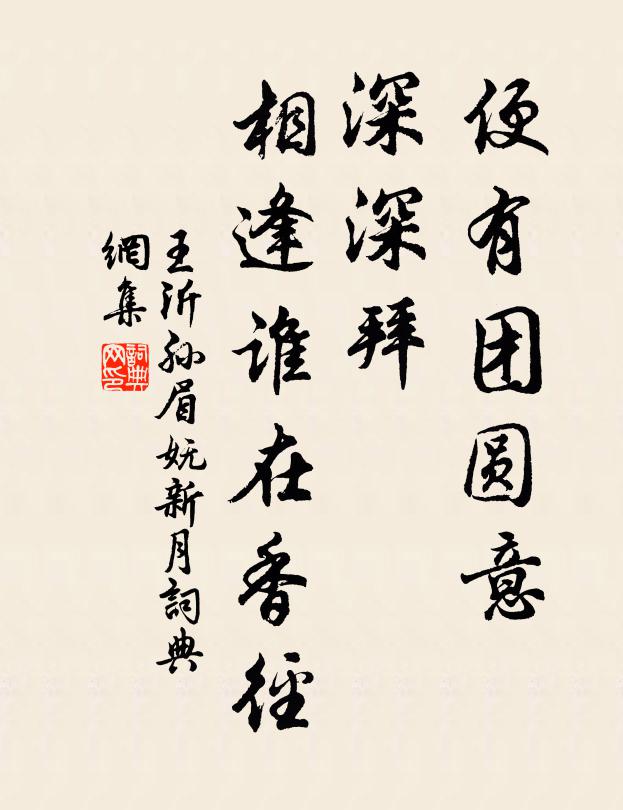 便有团圆意
深深拜
相逢谁在香径
王沂孙眉妩新月詞典
網集
詞典网印